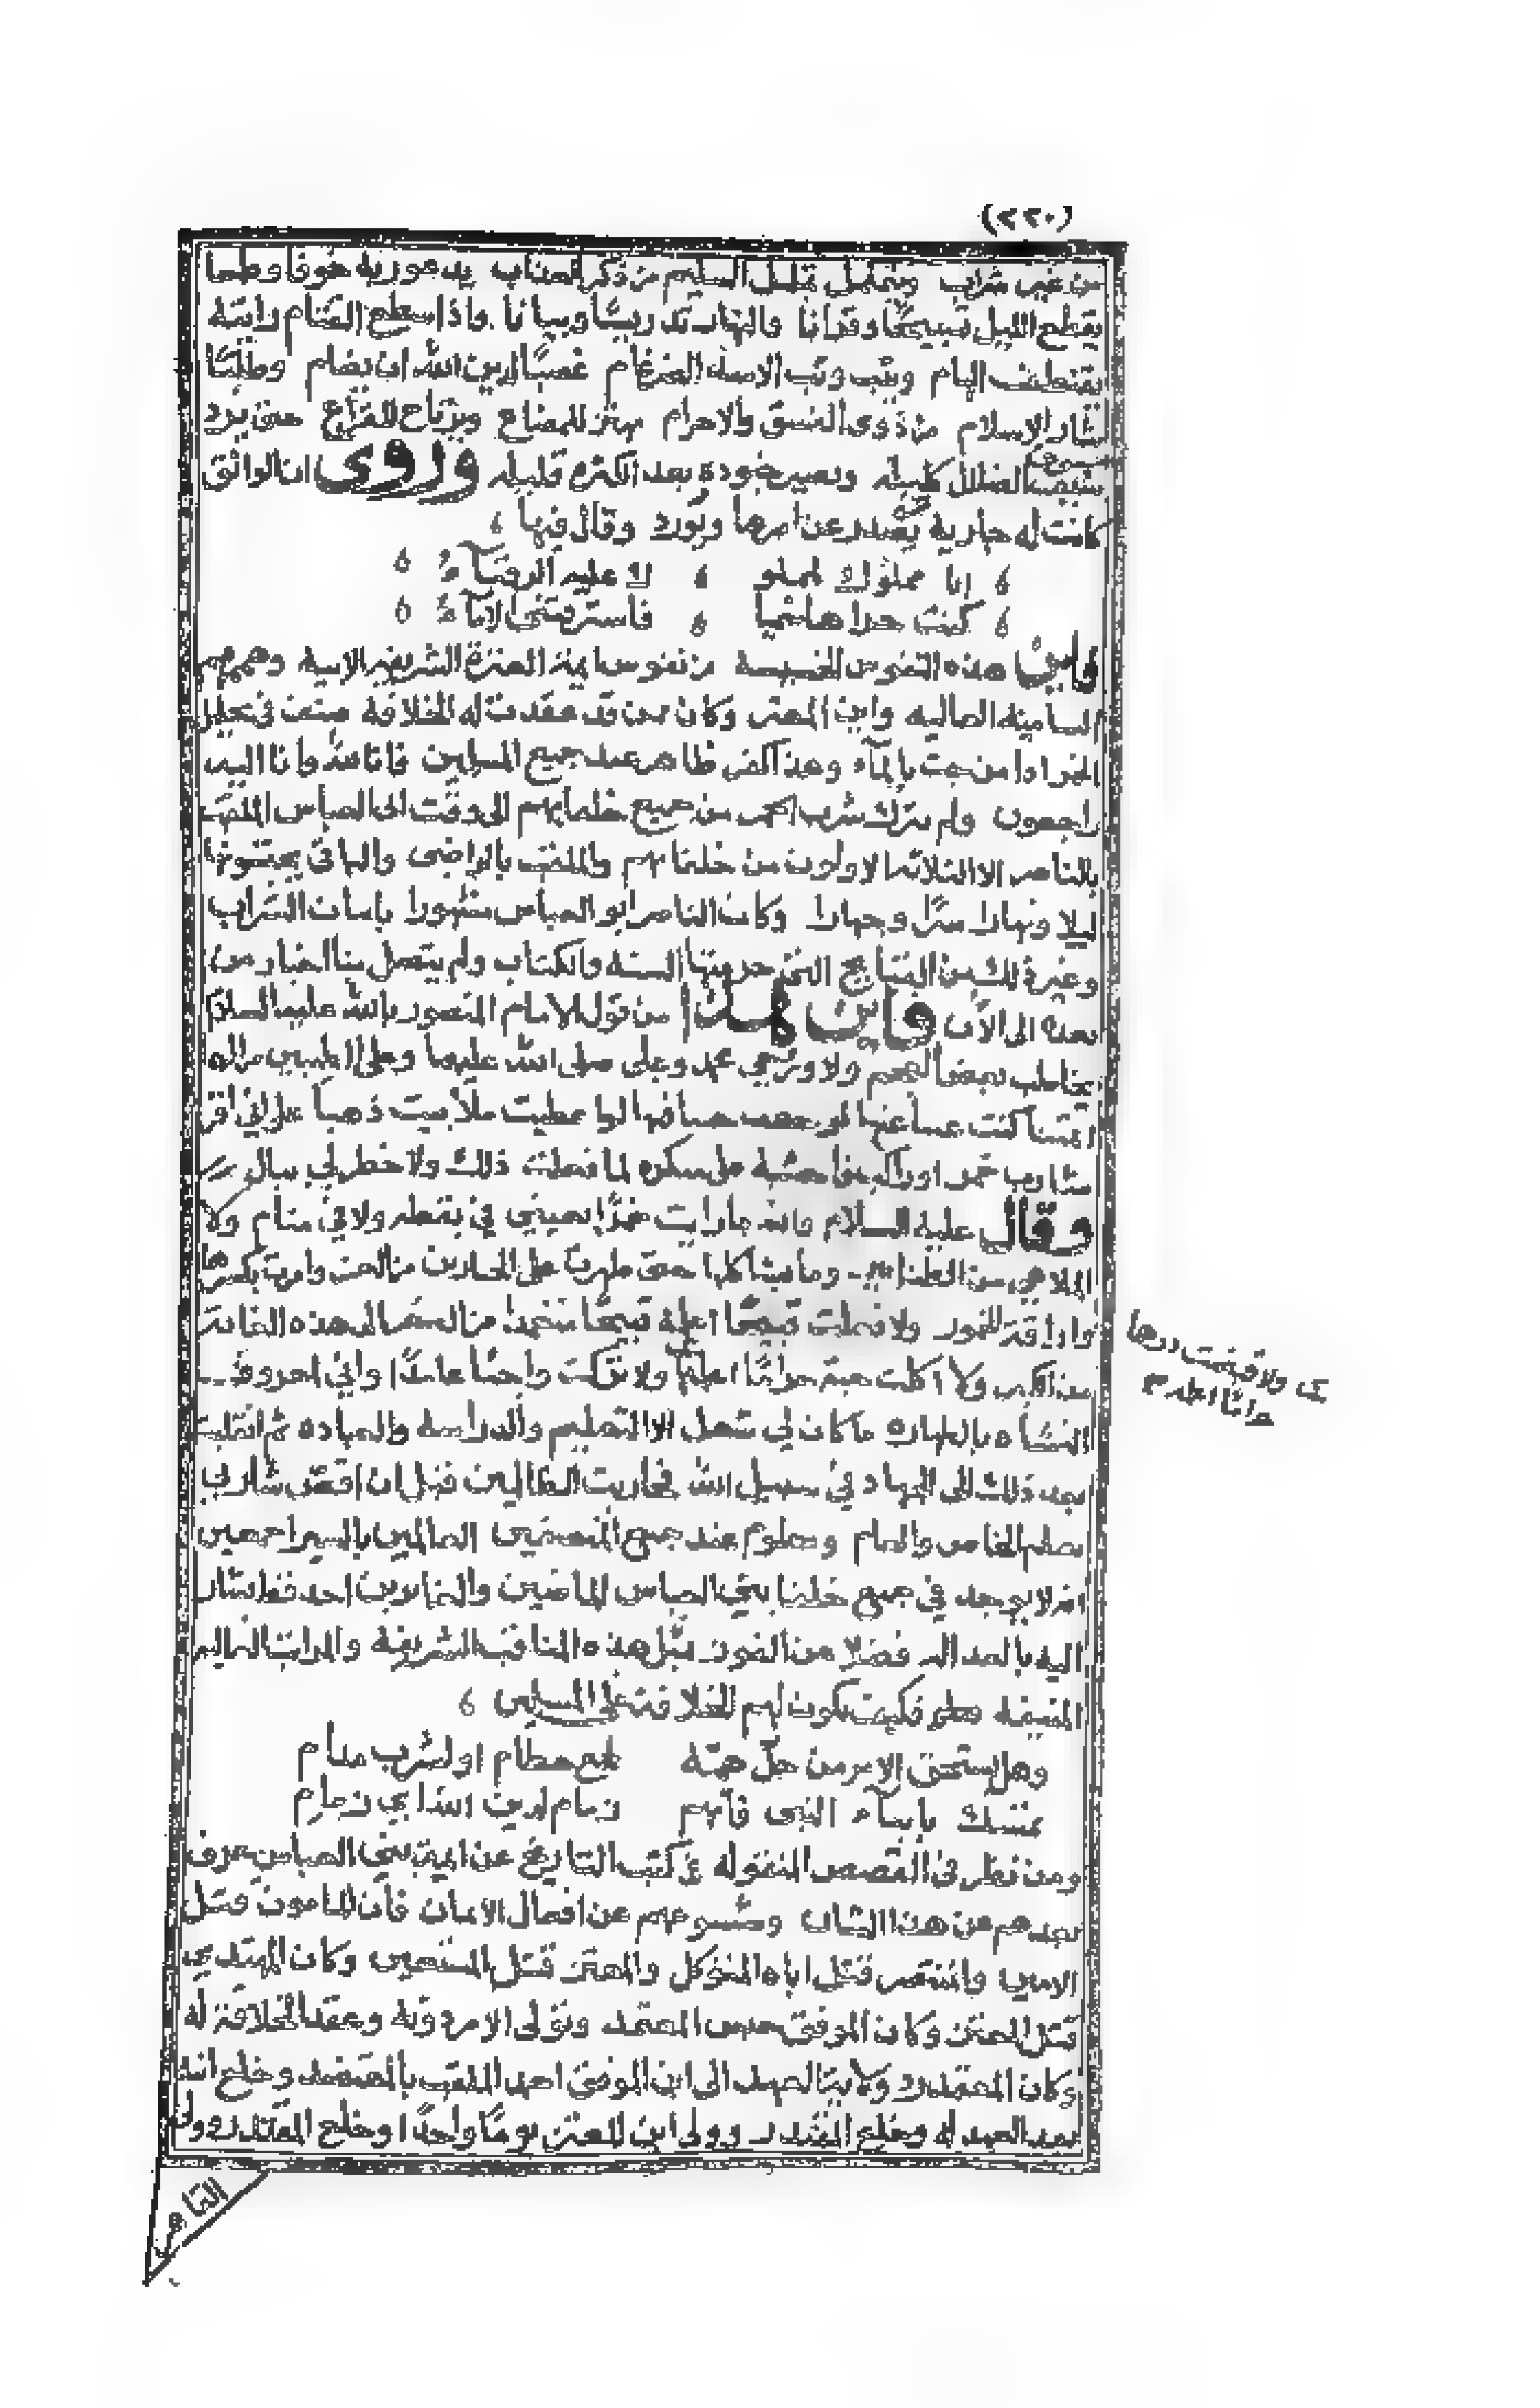 (٢٢٠)
من غير شراب ويتململ تململ السليم من ذكر العذاب يدعو ربه خوفا وطمعا
يقطع الليل تسبيحًا وقرآنا والنهار تدريسًا وبيانا واذا سطع القتام راسه
يقتطف الهام ويثب وثب الاسد الضرغام غضبًا لدين الله ان يضام وطلبًا
لثار الاسلام من ذوي الفسق والاجرام يهتز للمصاع ويرتاح للقراع حتى يرد
سيف الضلال كليله وتصير جنوده بعد الكثرة قليله وروى ان الواثق
كانت له جارية يصدر عن امرها ويورد وقال فيها
انا مملوك لمملو ك عليه الرقبآء
كنت حرا هاشميا فاسترقتني الامآء
واين هذه النفوس الخسيسة من نفوس ايمة العترة الشريفه الابية وهممهم
السامية العاليه وابن المعتز وكان ممن قد عقدت له الخلافة صنف في تحليل
الخمر اذا مزجت بالمآء وهذا كفر ظاهر عند جميع المسلمين فانا لله وانا اليه
راجعون ولم يترك شرب الخمر من جميع خلفايهم الى وقت ابي العباس الملقب
بالناصر الا الثلاثه الاولون من خلفايهم والملقب بالراضي والباقي يحتسونها
ليلا ونهارا سرًا وجهارا وكان الناصر ابو العباس مشهورا بادمان الشراب
وغير ذلك من القبايح التي حرمتها السنه والكتاب ولم يتصل بنا اخبار من
بعده الى الآن فاين هذا من قول الامام المنصور بالله عليه السلام
يخاطب بعض العجم ولا وتربتي محمد وعلي صلى الله عليهما وعلى الطيبين من الهما
شارب خمر او راكب فاحشة على منكره لما فعلت ذلك ولا خطر لي ببال
وقال عليه السلام والله ما رايت خمرًا بعيني في يقظه ولا في منام ولا
الملاهي من الطنابير وما شاكلها حتى ظهرت على المحاربين من الغز وامرت بكسرها
واراقة الخمور ولا فعلت قبيحًا اعلمه قبيحًا متعمدا من الصغر الى هذه الغاية
من الكبر ولا اكلت حبة حرامًا اعلمها ولا تركت واجبًا عامدًا واني لمعروف
النشأه بالطهاره ما كان لي شغل الا التعليم والدراسة والعباده ثم انتقلت
بعد ذلك الى الجهاد في سبيل الله فحاربت الظالمين قبل ان اقص شاربي
يعلم الخاص والعام ومعلوم عند جميع المنصفين العالمين بالسير اجمعين
انه لا يوجد في جميع خلفا بني العباس الماضين والغابرين احد قط يشار
اليه بالعدالة فضلا عن الفوز بمثل هذه المناقب الشريفة والمراتب العالية
المنيفه فكيف تكون لهم الخلافة على المسلمين
وهل يستحق الامر من جل همه لجمع حطام او لشرب مدام
تمسك بابنآء النبي فانهم زمام لدين الله اي زمام
ومن نظر في القصص المنقوله في كتب التاريخ عن ايمة بني العباس عرف
بعدهم عن هذا الشان وخروجهم عن افعال الايمان فان المامون قتل
الامين والمنتصر قتل اباه المتوكل والمعتز قتل المستعين وكان المهتدي
قتل المعتز وكان الموفق حبس المعتمد وتولى الامر دونه وعقد الخلافة له
وكان المعتمد رد ولاية العهد الى ابن الموفق احمد الملقب بالمعتضد وخلع ابنه
بعد العهد له وخلع المقتدر وولى ابن المعتز يومًا واحدًا وخلع المقتدر وولى
القاهر
ولا قبضت درهما
حرامًا اعلمه